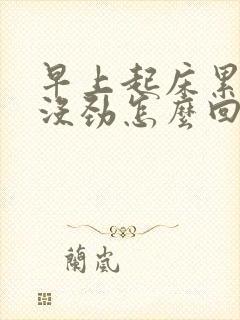 早上起床累
没劲怎麼回
蘭嵐